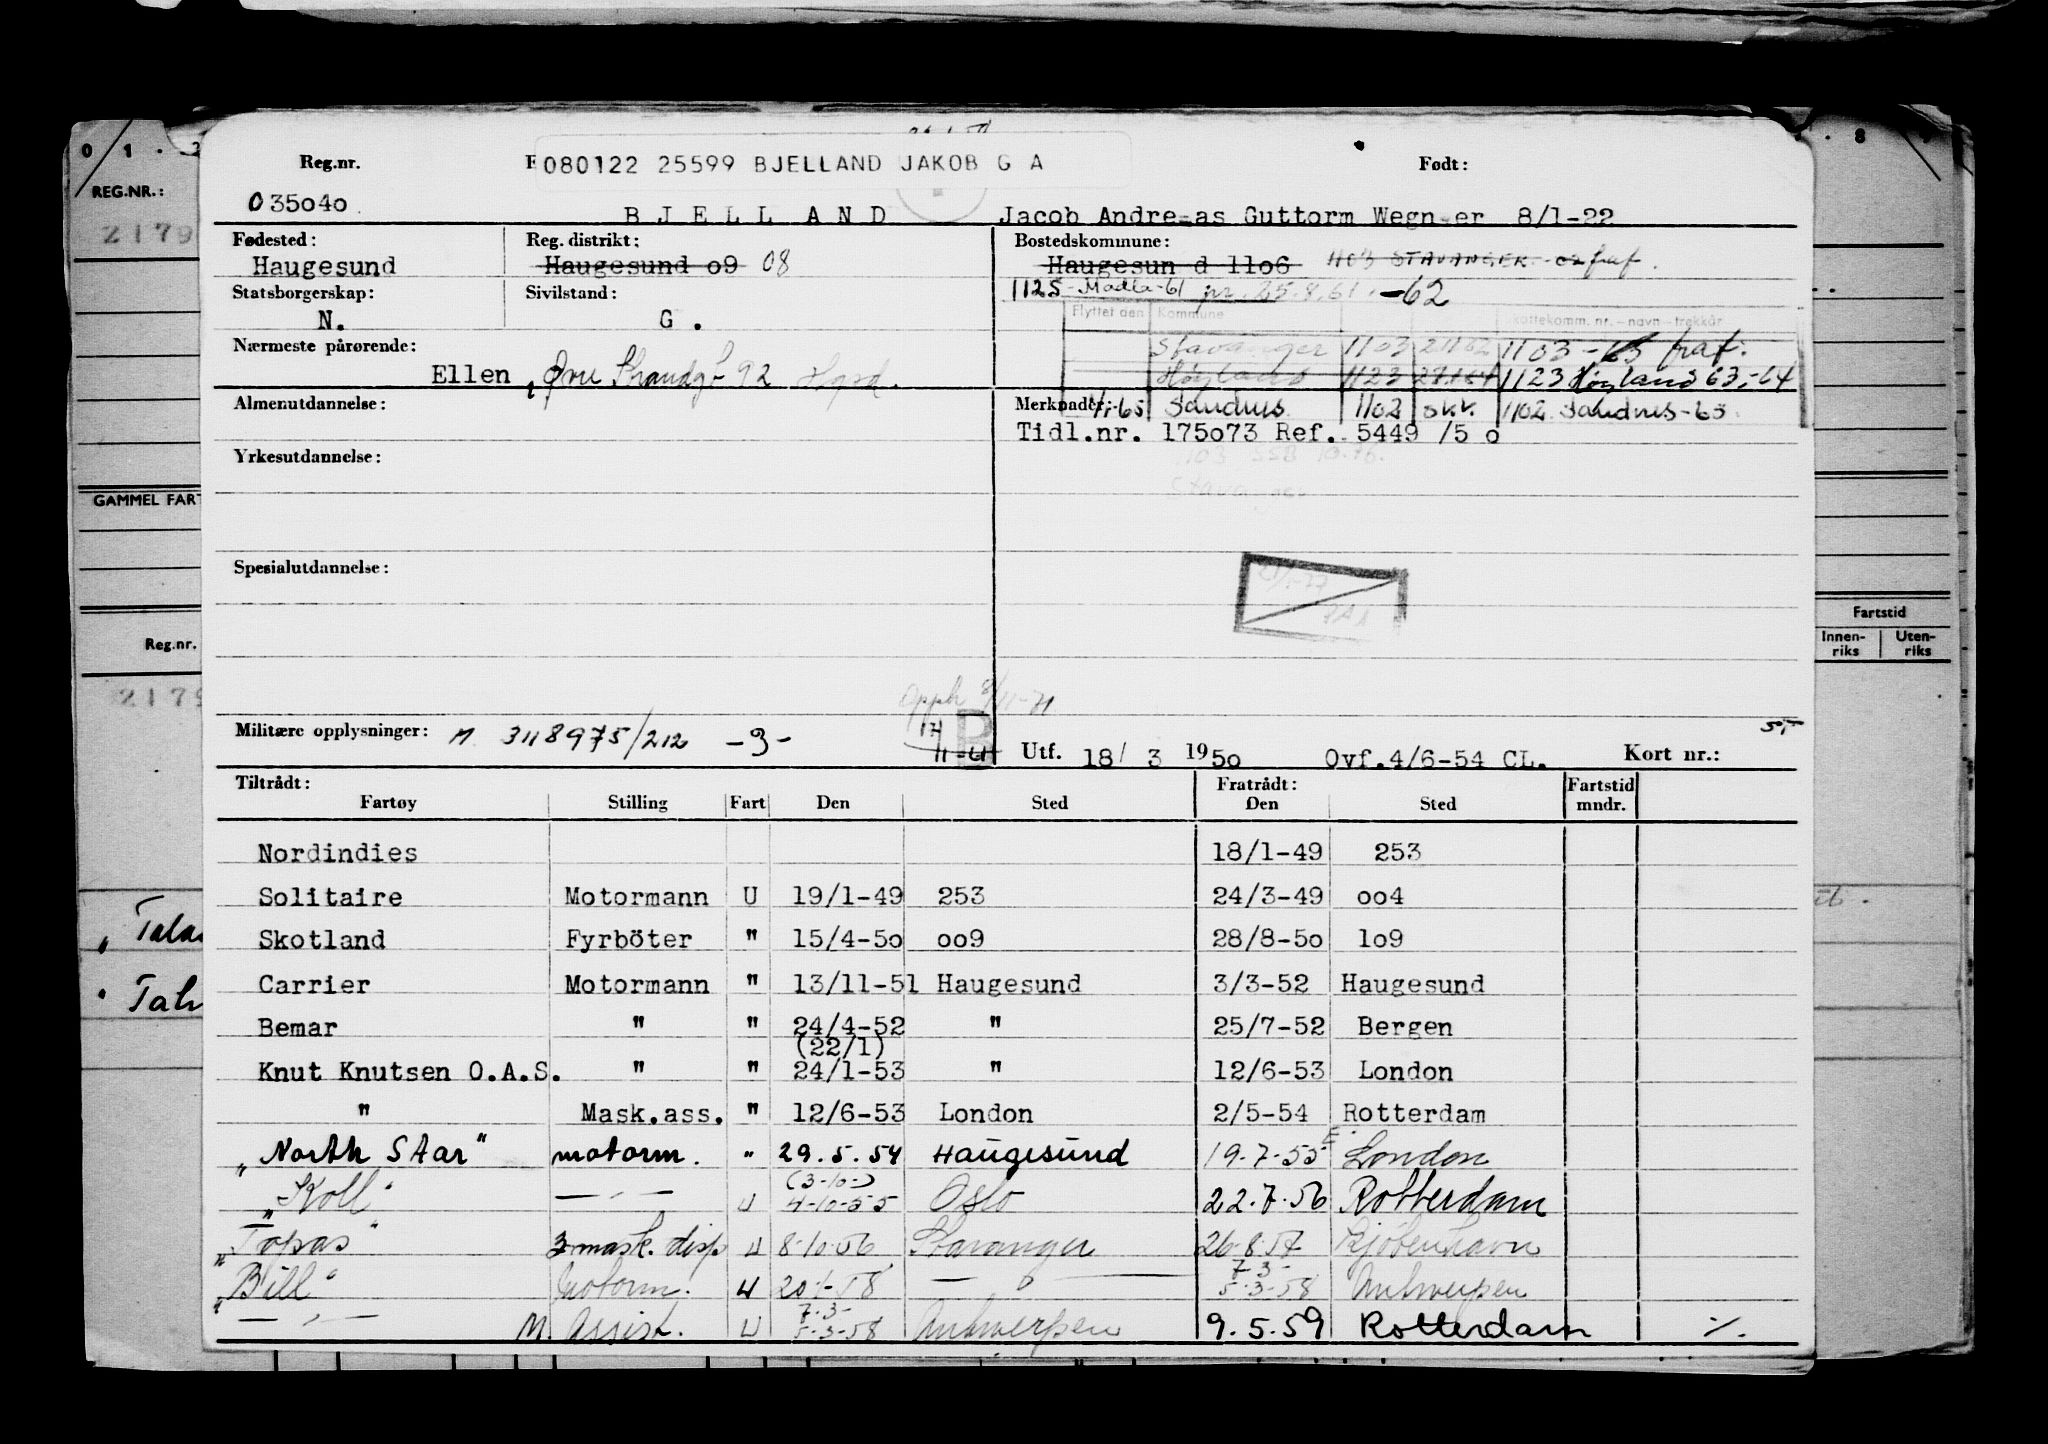 Reg.nr.
080122 25599 BJELLAND JAKOB G A
Født:
035040
B J E L L A N D Jacob Andreas Guttorm Wegner 8/1-22
Fødested: Reg. distrikt: Bostedskommune:
Haugesund Haugesund o9 08 Haugesund 11o6 1103 STAVANGER fraf.
Statsborgerskap: Sivilstand: 1125 - Madla -61 pr. 25.8.61. -62
N. G .
Flyttet den Kommune skattekomm. nr. - navn - trekkår
Nærmeste pårørende: Stavanger 1103 1103 -63 fraf.
Ellen, Øvre Strandgt 92 Hgsd. Høyland 1123 1123 Høyland 63,-64
Almenutdannelse: Merknader: -65 Sandnes 1102 skv. 1102 Sandnes-65
Tidl.nr. 175o73 Ref. 5449 /5 o
Yrkesutdannelse: 1103 SSB 10.76.
Stavanger
Spesialutdannelse:
Opph 8/11-71
Militære opplysninger: M. 3118975/212 -3- 17/11-61 B
Utf. 18/ 3 1950 Ovf.4/6-54 CL. Kort nr.:
Tiltrådt: Fratrådt: Fartstid
Fartøy Stilling Fart Den Sted Den Sted mndr.
Nordindies 18/1-49 253
Solitaire Motormann U 19/1-49 253 24/3-49 oo4
Skotland Fyrböter " 15/4-5o oo9 28/8-5o 1o9
Carrier Motormann " 13/11-51 Haugesund 3/3-52 Haugesund
Bemar " " 24/4-52 " 25/7-52 Bergen
(22/1)
Knut Knutsen O.A.S. " " 24/1-53 " 12/6-53 London
" Mask.ass. " 12/6-53 London 2/5-54 Rotterdam
"North Star" motorm. " 29.5.54 Haugesund 19.7.55 London
(3-10-)
"Koll" — " — U 4-10-55 Oslo 22.7.56 Rotterdam
"Topas" 3 mask. disp U 8-10-56 Stavanger 26.8.57 Kjøbenhavn
7-3-
"Bill" Motorm. U 20/1-58 — " — 5-3-58 Antwerpen
7-3-
— " — M. Assist. U 5-3-58 Antwerpen 9.5.59 Rotterdam ./.
REG.NR.:
GAMMEL FART
Reg.nr.
Fartstid
Innen-riks Uten-riks